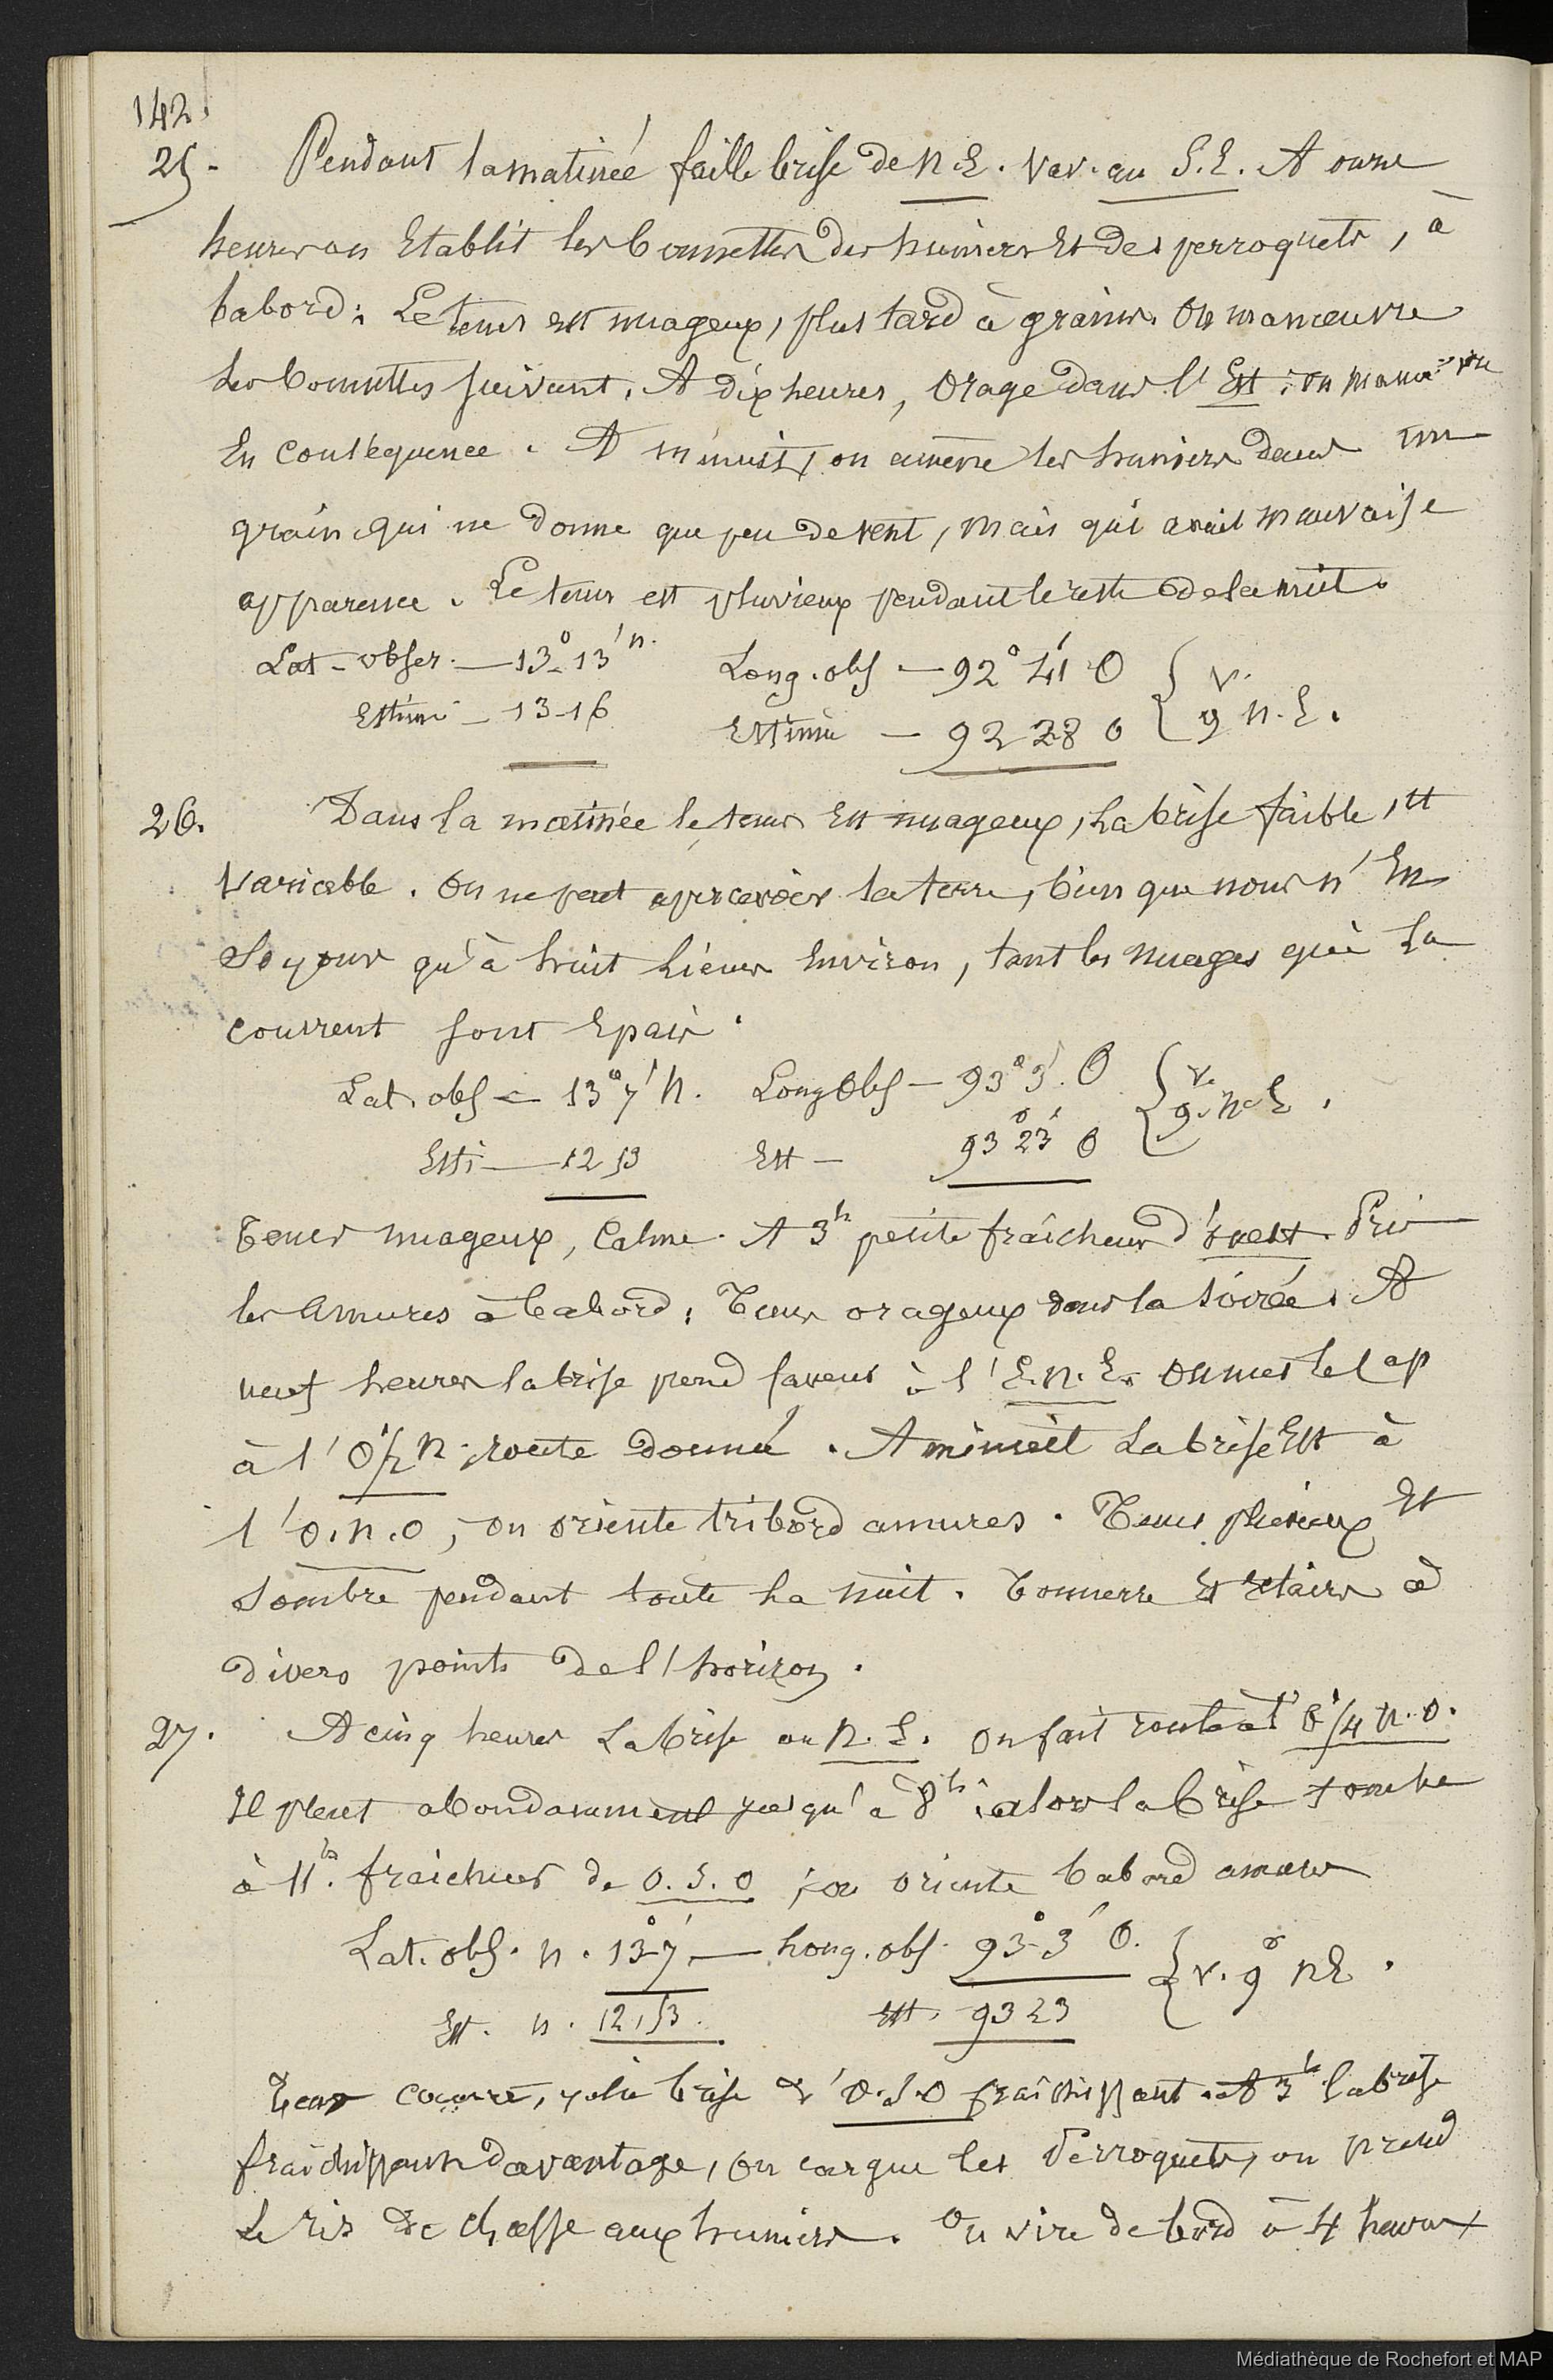 142.
25. Pendant la matinée faible brise de N.E. var. au S.E. A onze
heures on Etablit les bonnettes des huniers Et des perroquets, à
babord. Le tems est nuageux, plus tard à grains. On manœuvre
les bonnettes suivant. A dix heures, Orage dans l'Est; on manœuvre
En conséquence. A minuit, on amène les huniers dans un
grain, qui ne donne que peu de vent, mais qui avait mauvaise
apparence. Le tems est pluvieux pendant le reste de la nuit.
Lat - obser. — 13° 13' N. Long. obs — 92° 41' O { V.
Estimé — 13-16 Estimée — 92 28 O { 9 N.E.
26. Dans la matinée le tems Est nuageux, La brise faible, et
variable. On ne peut apercevoir la terre, bien que nous n'En
soyons qu'à huit lieues Environ, tant les nuages qui la
couvrent sont Epais.
Lat. obs — 13° 7' N. Long Obs — 93° 3'. O { V.
Esti — 12 53 Est — 93° 23' O { 9. N.E.
Tems nuageux, Calme. A 3h petite fraîcheur d'ouest. Pris
les Amures à babord. Tems orageux dans la soirée. A
neuf heures la brise prend faveur à l'E.N.E. On met le cap
à l'O ¼ N. route donnée. A minuit La brise Est à
l'O.N.O, on oriente tribord amures. Tems pluvieux Et
Sombre pendant toute la nuit. Tonnerre Et Eclairs à
divers points de l'horizon.
27. A cinq heures La brise au N.E. On fait route à l'O ¼ N.O.
Il pleut abondamment jusqu'à 8h; alors la brise tombe
à 11h. fraîcheur de O.S.O; on oriente babord amures
Lat. obs. N. 13°-7' — Long. obs. 93°-3' O. { V. 9° NE.
Est. N. 12,53. Est. 93 23
Tems couvert, jolie brise d'O.S.O fraîchissant. A 3h la brise
fraîchissant davantage, On cargue les Perroquets, on prend
Le ris de chasse aux huniers. On vire de bord à 4 heures
Médiathèque de Rochefort et MAP